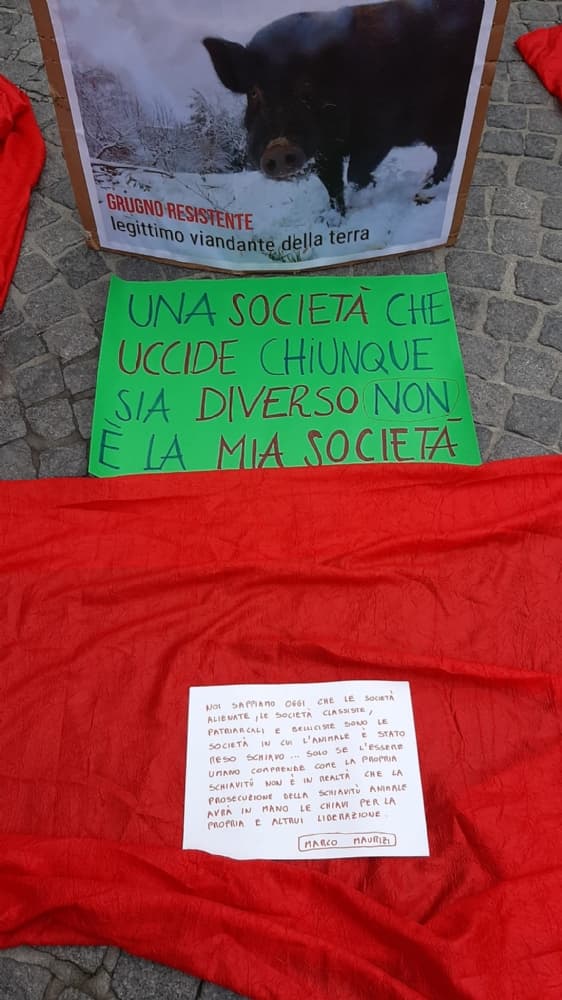 GRUGNO RESISTENTE
legittimo viandante della terra
UNA SOCIETÀ CHE
UCCIDE CHIUNQUE
SIA DIVERSO NON
È LA MIA SOCIETÀ
NOI SAPPIAMO OGGI CHE LE SOCIETÀ
ALIENATE, LE SOCIETÀ CLASSISTE,
PATRIARCALI E BELLICISTE SONO LE
SOCIETÀ IN CUI L'ANIMALE È STATO
RESO SCHIAVO... SOLO SE L'ESSERE
UMANO COMPRENDE COME LA PROPRIA
SCHIAVITÙ NON È IN REALTÀ CHE LA
PROSECUZIONE DELLA SCHIAVITÙ ANIMALE
AVRÀ IN MANO LE CHIAVI PER LA
PROPRIA E ALTRUI LIBERAZIONE.
MARCO MAURIZI